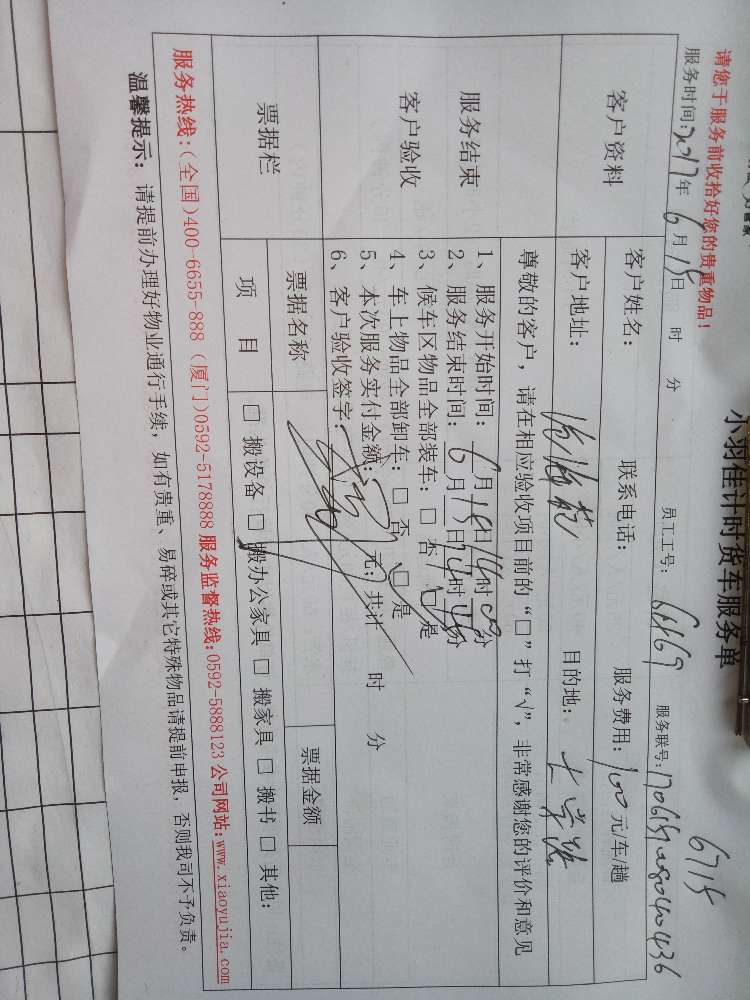 小羽佳计时货车服务单
请您于服务前收拾好您的贵重物品！
6715
服务时间：2017年6月15日 时 分 员工工号： 服务联号：
客户资料 客户姓名： 联系电话： 服务费用：100元/车/趟
客户地址： 目的地：
尊敬的客户，请在相应验收项目前的“□”打“√”，非常感谢您的评价和意见
服务结束
客户验收
1、服务开始时间：6月15日 时 分
2、服务结束时间：6月15日 时 分
3、候车区物品全部装车：□ 否 □ 是
4、车上物品全部卸车：□ 否 □ 是
5、本次服务实付金额： 元；共计 时 分
6、客户验收签字：
票据栏 票据名称 票据金额
项 目 □ 搬设备 □ 搬办公家具 □ 搬家具 □ 搬书 □ 其他：
服务热线：（全国）400-6655-888（厦门）0592-5178888 服务监督热线：0592-5888123 公司网站：www.xiaoyujia.com
温馨提示：请提前办理好物业通行手续，如有贵重、易碎或其它特殊物品请提前申报，否则我司不予负责。